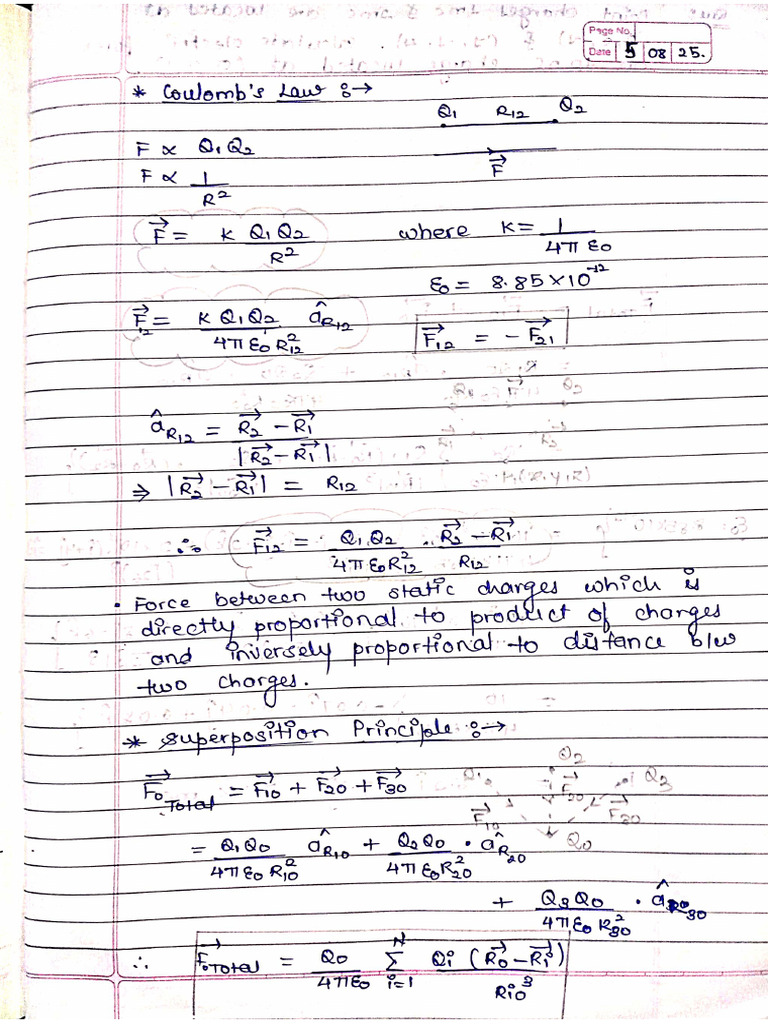 Page No.
Date 5 08 25.
* Coulomb's Law :→
Q1 R12 Q2
F ∝ Q1Q2
F⃗
F ∝ 1/R²
F⃗ = K Q1Q2/R² where K = 1/4πε0
ε0 = 8.85×10⁻¹²
F⃗12 = K Q1Q2/4πε0R12² âR12 F⃗12 = −F⃗21
âR12 = (R⃗2 − R⃗1)/|R⃗2 − R⃗1|
⇒ |R⃗2 − R⃗1| = R12
∴ F⃗12 = Q1Q2/4πε0R12² · (R⃗2 − R⃗1)/R12
• Force between two static charges which is
directly proportional to product of charges
and inversely proportional to distance b/w
two charges.
* Superposition Principle :→
F⃗0 Total = F⃗10 + F⃗20 + F⃗30
Q1 Q2 Q3
F⃗10 F⃗20 F⃗30
Q0
= Q1Q0/4πε0R10² âR10 + Q2Q0/4πε0R20² · âR20
+ Q3Q0/4πε0R30² · âR30
∴ F⃗0 Total = Q0/4πε0 Σ i=1 N Qi (R⃗0 − R⃗i)/Ri0³